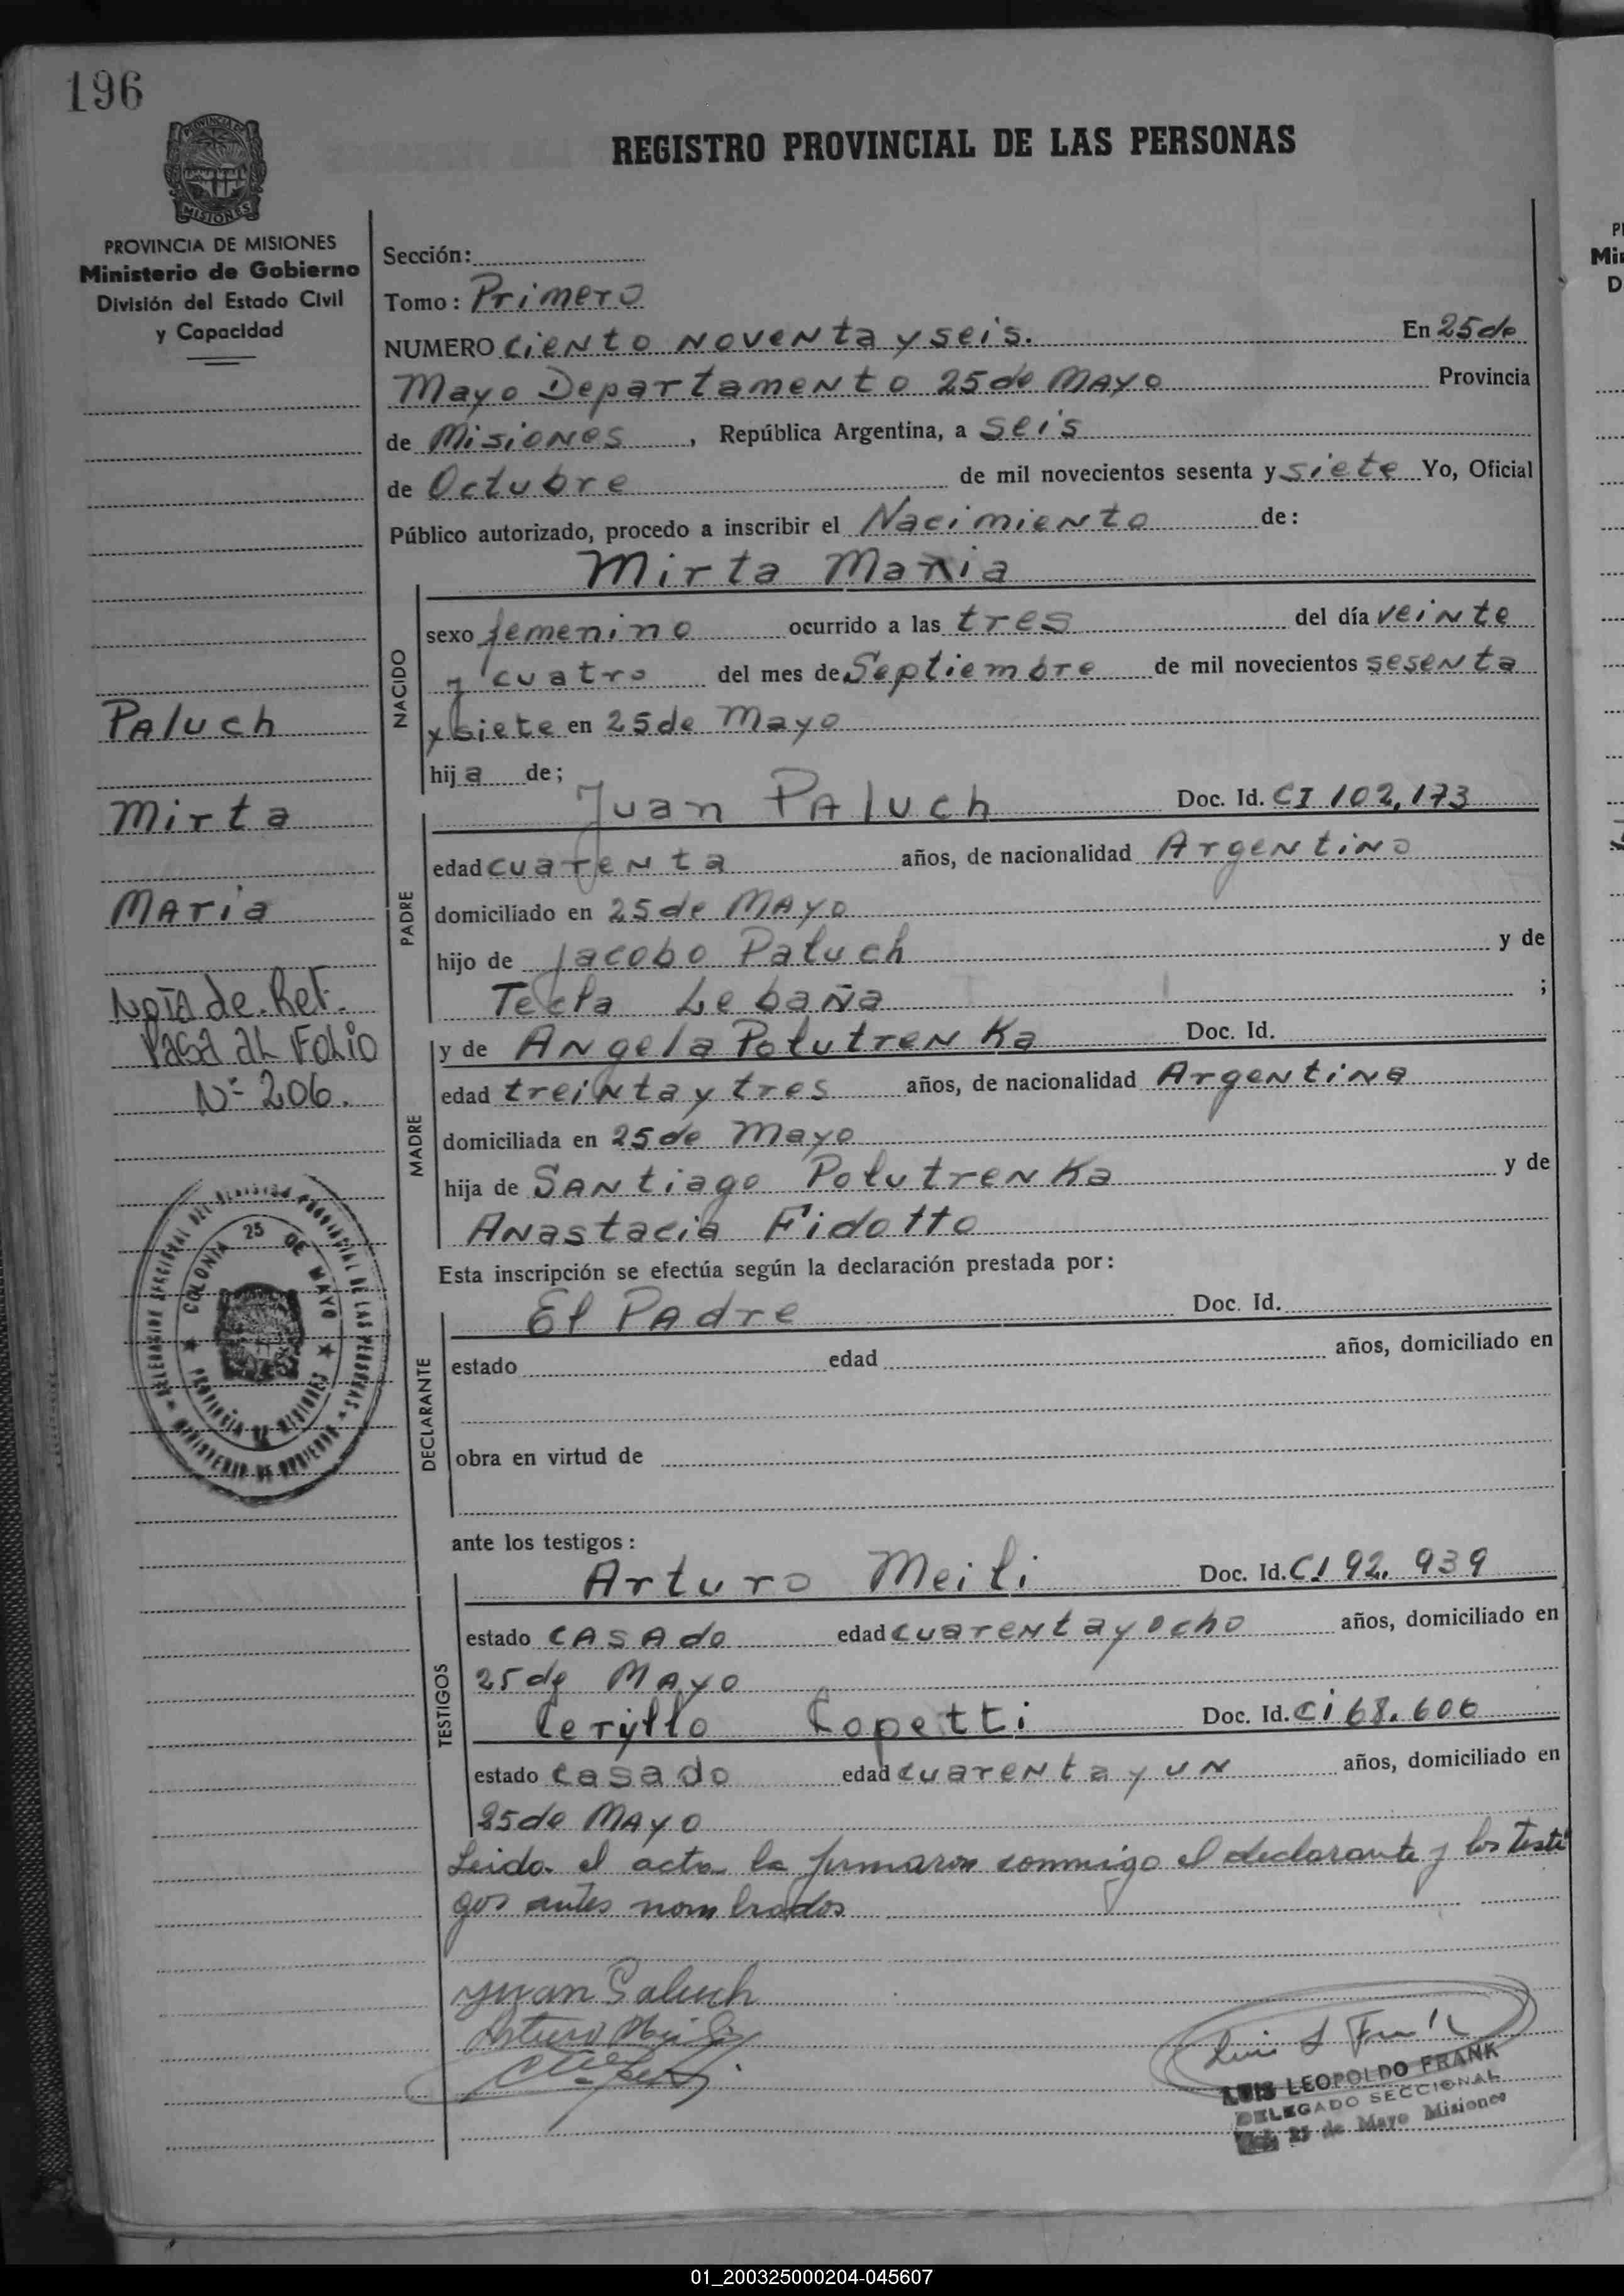 196
PROVINCIA DE MISIONES
REGISTRO PROVINCIAL DE LAS PERSONAS
PROVINCIA DE MISIONES
Ministerio de Gobierno
División del Estado Civil
y Capacidad
Sección:
Tomo: Primero
NUMERO ciento noventa y seis. En 25 de
Mayo Departamento 25 de Mayo Provincia
de Misiones, República Argentina, a seis
de Octubre de mil novecientos sesenta y siete Yo, Oficial
Público autorizado, procedo a inscribir el Nacimiento de:
Mirta Maria
NACIDO
sexo femenino ocurrido a las tres del día veinte
y cuatro del mes de Septiembre de mil novecientos sesenta
y siete en 25 de Mayo
hija de;
Paluch
Mirta
Maria
Nota de Ref.
Pasa al Folio
Nº 206.
PADRE
Juan Paluch Doc. Id. CI 102,173
edad cuarenta años, de nacionalidad Argentino
domiciliado en 25 de Mayo
hijo de Jacobo Paluch y de
Tecla Lebaña ;
MADRE
y de Angela Polutrenka Doc. Id.
edad treinta y tres años, de nacionalidad Argentina
domiciliada en 25 de Mayo
hija de Santiago Polutrenka y de
Anastacia Fidotto
COLONIA 25 DE MAYO
PROVINCIA DE MISIONES
MINISTERIO DE GOBIERNO
Esta inscripción se efectúa según la declaración prestada por:
DECLARANTE
El Padre Doc. Id.
estado edad años, domiciliado en
obra en virtud de
ante los testigos:
TESTIGOS
Arturo Meili Doc. Id. CI 92.939
estado casado edad cuarenta y ocho años, domiciliado en
25 de Mayo
Copetti Doc. Id. Ci 68.606
estado casado edad cuarenta y un años, domiciliado en
25 de Mayo
Leido el acta la firmaron conmigo el declarante y los testi
gos antes nombrados
Juan Paluch
Arturo Meili
LUIS LEOPOLDO FRANK
DELEGADO SECCIONAL
25 de Mayo Misiones
01_200325000204-045607